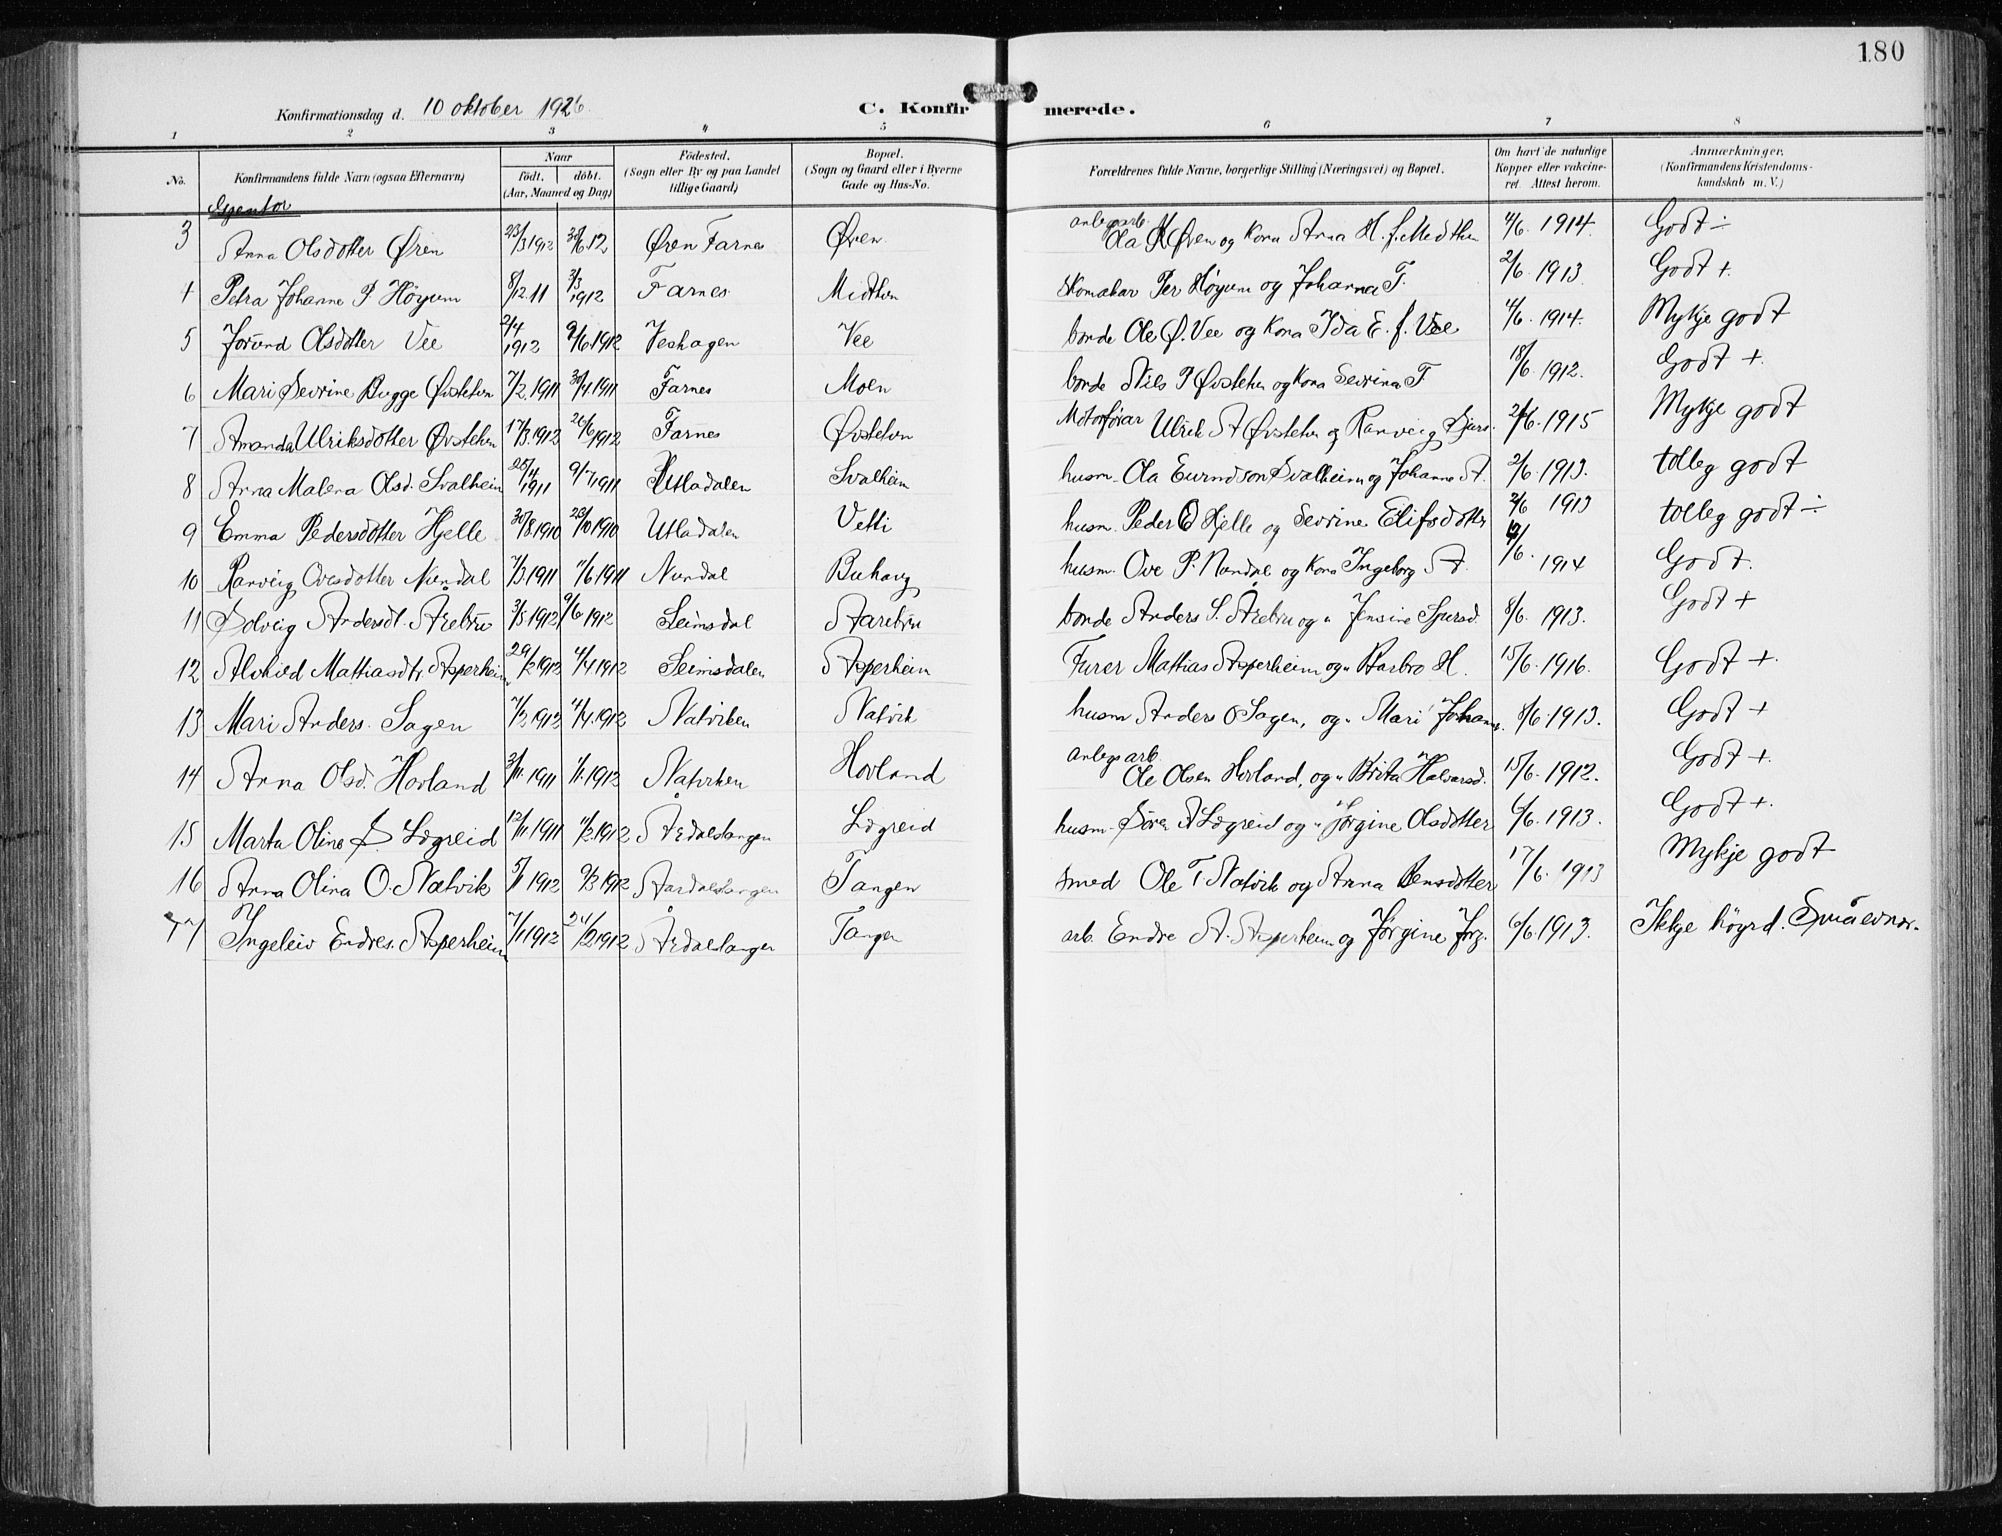 180
Konfirmationsdag d. 10 oktober 1926
C. Konfirmerede.
1 2 3 4 5 6 7 8
No. Konfirmandens fulde Navn (ogsaa Efternavn) Naar født. døbt. (Aar, Maaned og Dag) Fødested. (Sogn eller By og paa Landet tillige Gaard) Bopæl. (Sogn og Gaard eller i Byerne Gade og Hus-No. Forældrenes fulde Navne, borgerlige Stilling (Næringsvei) og Bopæl. Om havt de naturlige Kopper eller vakcineret. Attest herom. Anmærkninger. (Konfirmandens Kristendomskundskab m. V.)
Gjentor
3 Anna Olsdotter Øren 23/3 1912 30/6 12 Øren Farnes Øren anlegsarb. Ola H Øren og Kona Anna H. f. Midthun 4/6. 1914. Godt ÷
4 Petra Johanne P Höyum 8/12 11 3/3 1912 Farnes Midthun Skomakar Per Höyum og Johanna T. 2/6. 1913. Godt +.
5 Jorund Olsdotter Vee 2/4 1912 9/6 1912 Veshagen Vee bonde Ole Ø. Vee og Kona Ida E. f. Vee 4/6. 1914. Mykje godt
6 Mari Sevrine Bugge Øvstetun 7/2 1911 30/4 1911 Farnes Moen bonde Nils P Øvstetun og Kona Sevrina T 18/6. 1912. Godt +.
7 Amanda Ulriksdotter Øvstetun 17/3 1912 26/6 1912 Farnes Øvstetun Motorförar Ulrik A Øvstetun og Ranveig Sjurs. 2/6. 1915 Mykje godt
8 Anna Malena Olsd. Svalheim 25/4 1911 9/7 1911 Utladalen Svalheim husm. Ola Eurndson Svalheim og Johanne A. 2/6. 1913. tolleg godt
9 Emma Pedersdotter Hjelle 30/8 1910 23/10 1910 Utladalen Vetti husm. Peder O Hjelle og Sevrine Elifsdotter 2/6 1913 tolleg godt ÷
10 Ranveig Ovesdotter Nundal 7/3 1911 11/6 1911 Nundal Buhaug husm. Ove P. Nundal og Kona Ingeborg A. /6. 1914 Godt.
11 Solveig Andersdt. Årebru 3/5 1912 9/6 1912 Seimsdal Aarebru bonde Anders S. Årebru og " Jensine Sjursd. 8/6. 1913. Godt +
12 Alvhild Mathiasdt. Asperheim 29/2 1912 4/4 1912 Seimsdalen Asperheim Furer Mathias Asperheim og " Barbro H. 15/6. 1916. Godt +.
13 Mari Anders. Sagen 7/3 1912 4/4 1912 Natviken Natvik husm Anders O Sagen, og " Mari Johanns. 8/6. 1913. Godt +
14 Anna Olsd. Hovland 3/11 1911 1/1. 1912 Natviken Hovland anlegsarb. Ole Olsen Hovland, og " Brita Halvarsd. 15/6. 1912. Godt +.
15 Marta Oline S. Lægreid 12/11 1911 11/2 1912 Årdalstangen Lægreid husm. Sören A Lægreid og " Jørgine Olsdotter 6/6. 1913. Godt +.
16 Anna Olina O. Natvik 5/1 1912 9/3 1912 Aardalstangen Tangen smed Ole T. Natvik og Anna Jensdotter 17/6. 1913 Mykje godt
17 Ingeleiv Endres. Asperheim 7/1 1912 24/2 1912 Årdalstangen Tangen arb. Endre A. Asperheim og Jørgine Jørg. 6/6. 1913. Ikkje höyrd. Småevner.